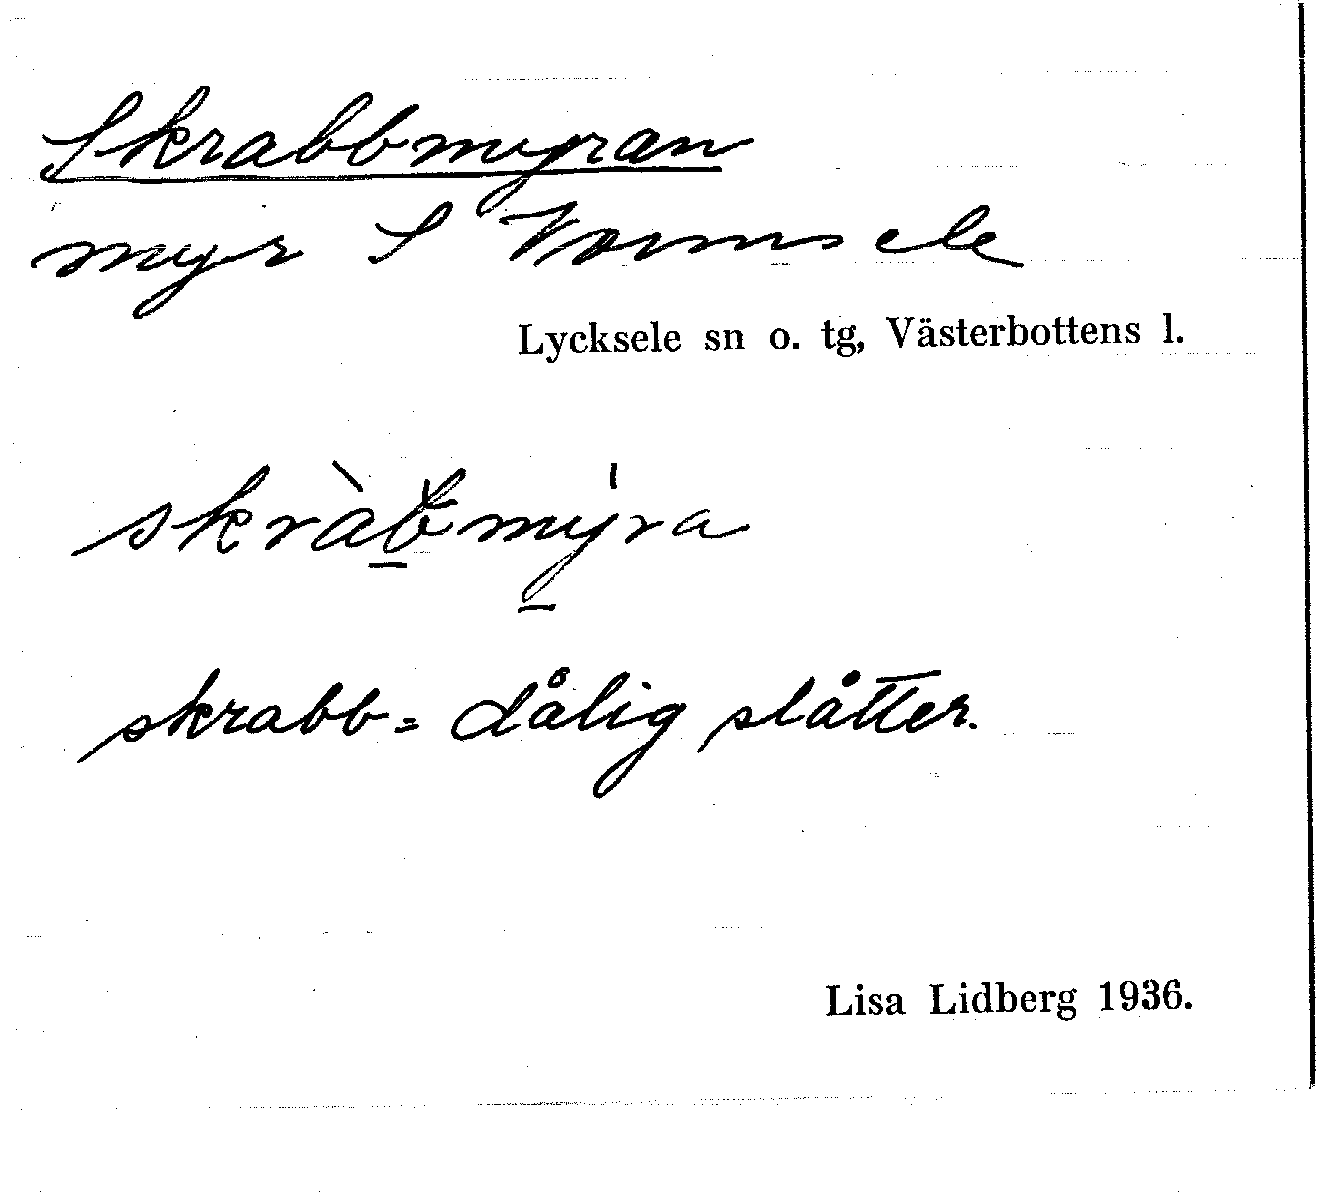 Skrabbmyran
myr S Vormsele
Lycksele sn o. tg, Västerbottens l.
skràb̆mýra
skrabb = dålig slåtter.
Lisa Lidberg 1936.